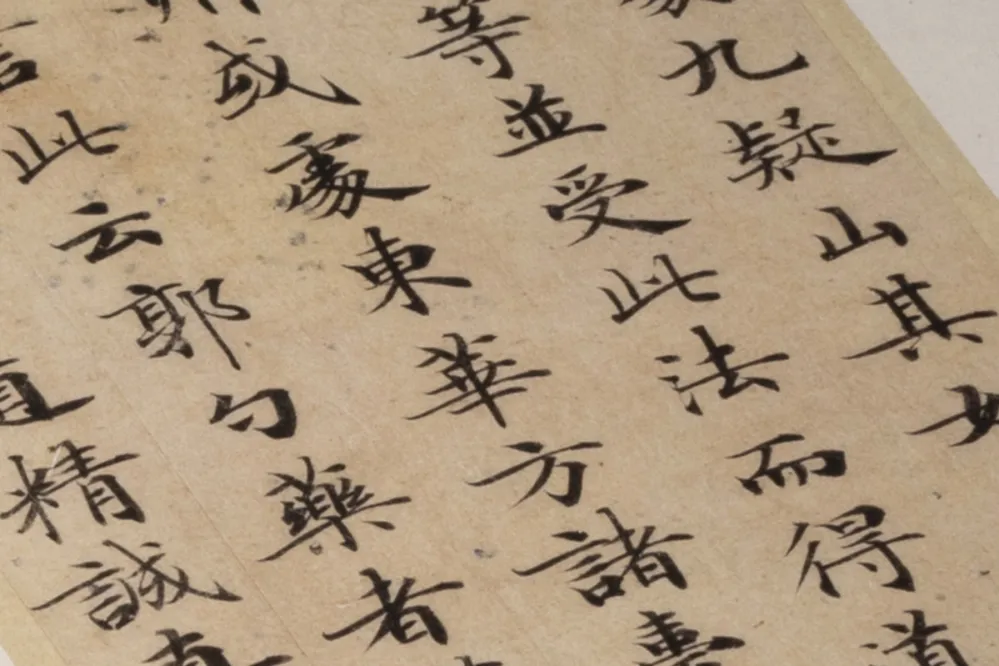 九疑山其女
等並受此法而得道
或處東華方諸臺
言此云郭勺藥者
道精誠真